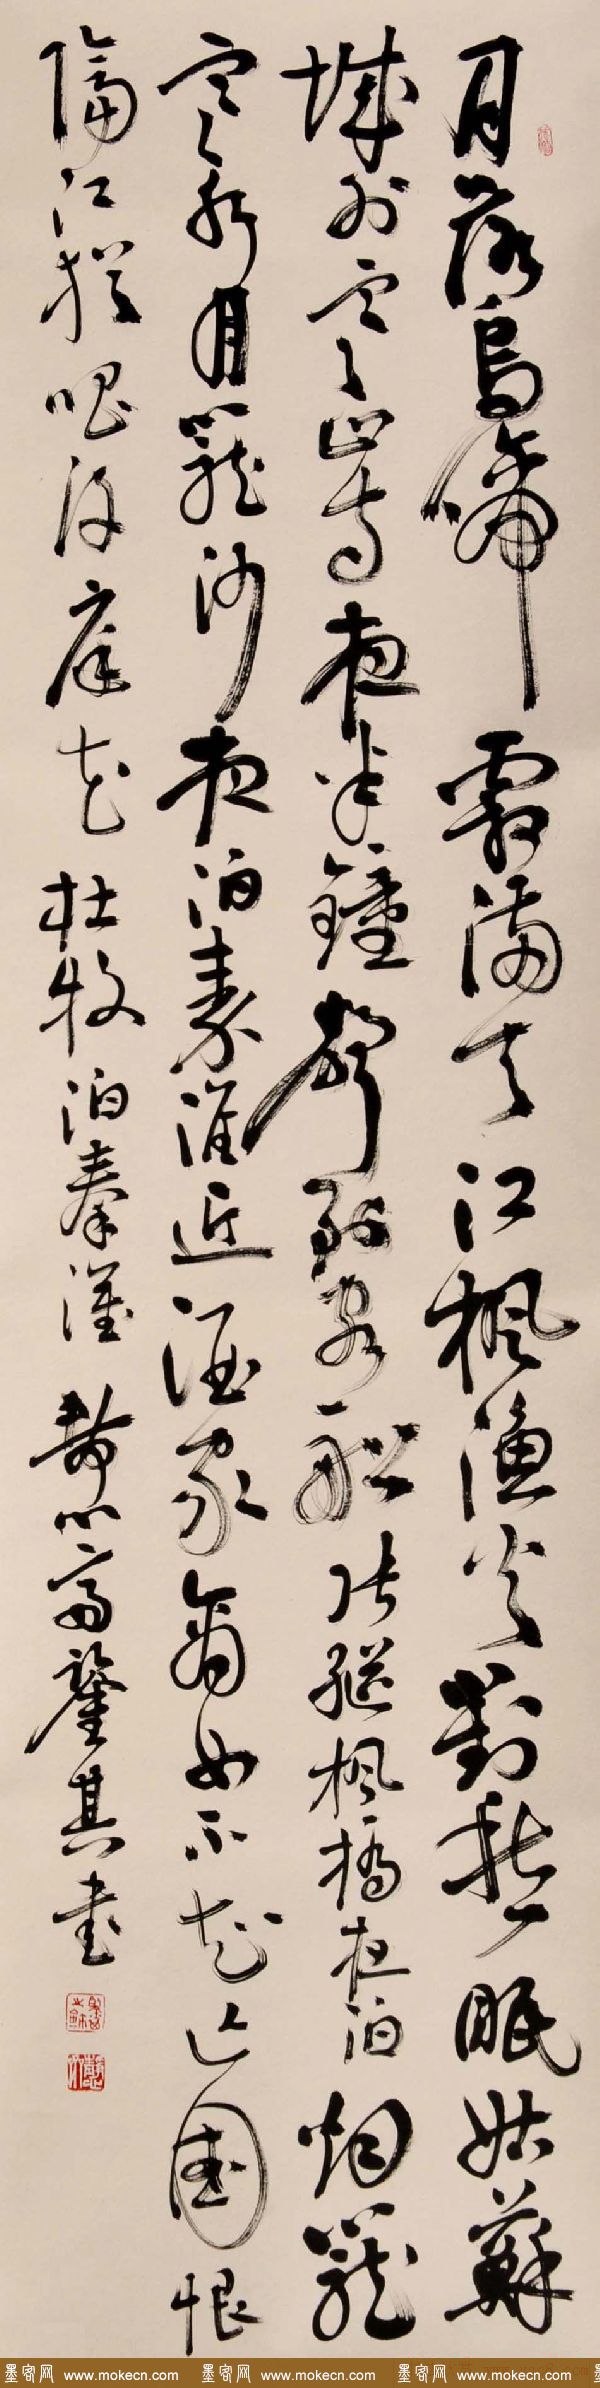 月落乌啼霜满天江枫渔火對愁眠姑蘇
城外寒山寺夜半鐘聲到客船張继枫橋夜泊烟籠
寒水月籠沙夜泊秦淮近酒家商女不知亡國恨
隔江猶唱後庭花杜牧泊秦淮静心斋鏊其书
墨客网 www.mokecn.com 墨客网 www.mokecn.com 墨客网 www.mokecn.com